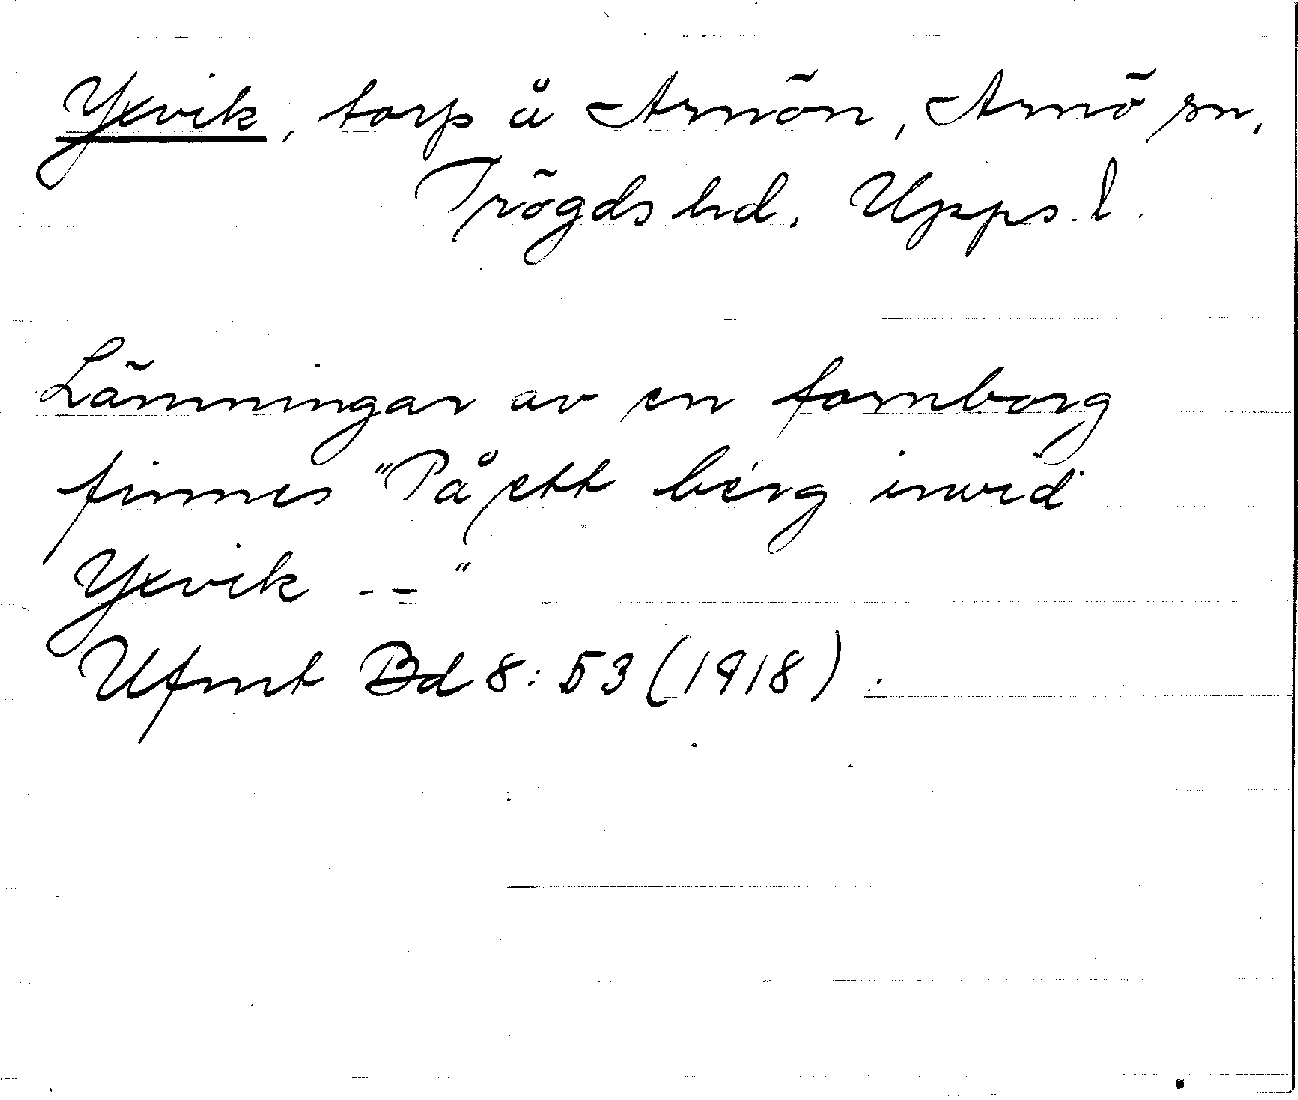 Yxvik, torp å Arnön, Arnö sn,
Trögds hd. Upps. l.
Lämningar av en fornborg
finnes "På ett berg invid
Yxvik -- "
Ufmt Bd 8: 53 (1918).